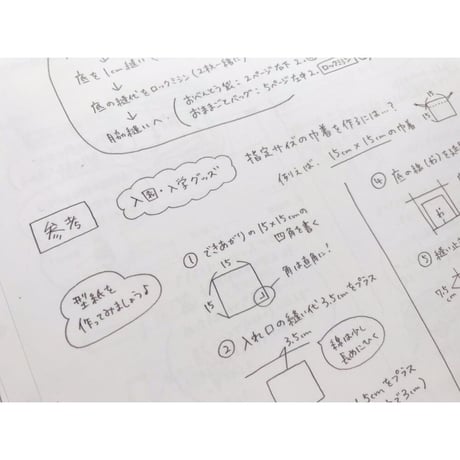 底を1cm縫い
↓
底の縫代をロックミシン(2枚一緒に
↓
脇の縫いへ
おべんとう袋:2ページ右下2.
おままごとバッグ:5ページ左中2.
ロックミシン
参考
入園・入学グッズ
型紙を
作ってみましょう♪
指定サイズの巾着を作るには…?
例えば 15cm×15cmの巾着
① できあがりの15×15cmの
四角を書く
15
15
角は直角に!
② 入れ口の縫い代3.5cmをプラス
3.5cm
線は少し
長めにひく
15
④ 底の線(わ)を
わ
⑤ 縫い
7.5
cm
.5cmをプラス
で3cm)